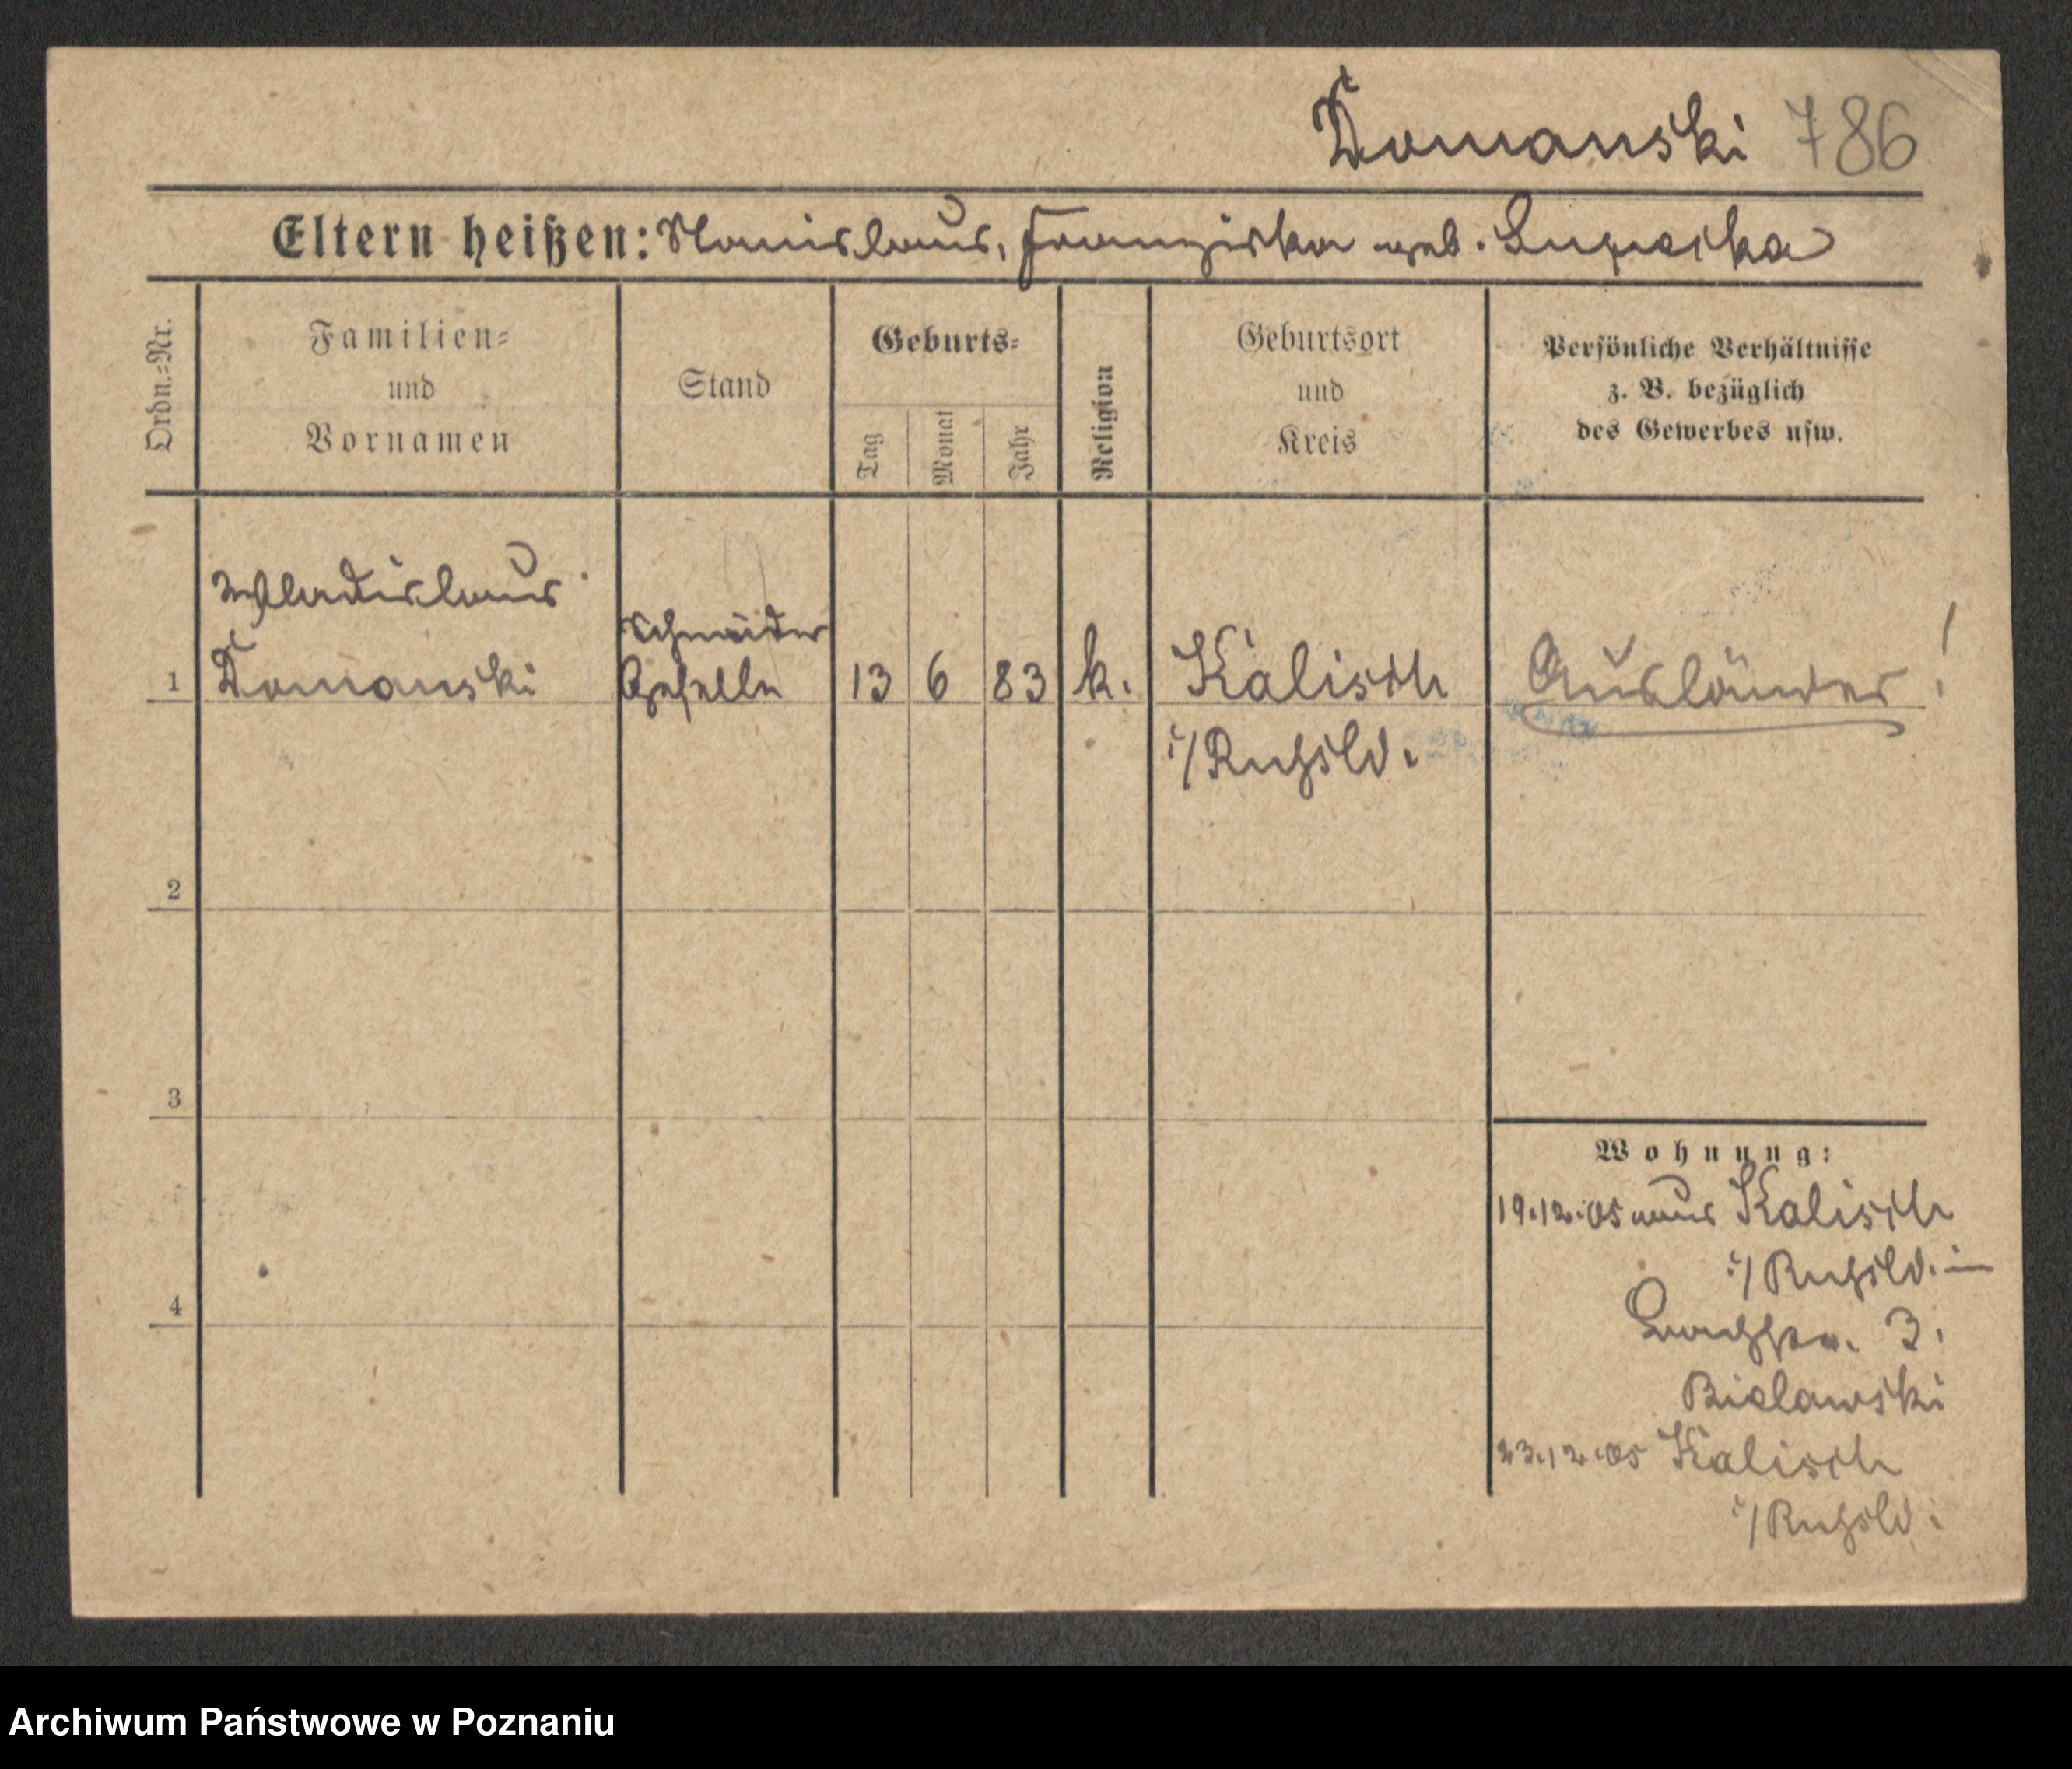 Domanski 786
Eltern heißen: Stanislaus, Franziska geb.
Ordn.=Nr.
Familien=
und
Vornamen
Stand
Geburts=
Tag
Monat
Jahr
Religion
Geburtsort
und
Kreis
Persönliche Verhältnisse
z. B. bezüglich
des Gewerbes usw.
Wladislaus
Schneider
1 Domanski Geselle 13 6 83 k. Kalisch Ausländer!
i/Rußld.
2
3
4
Wohnung:
19.12.05 aus Kalisch
i/Rußld. in
3.
Bielawski
23.12.05 Kalisch
i/Rußld.
Archiwum Państwowe w Poznaniu